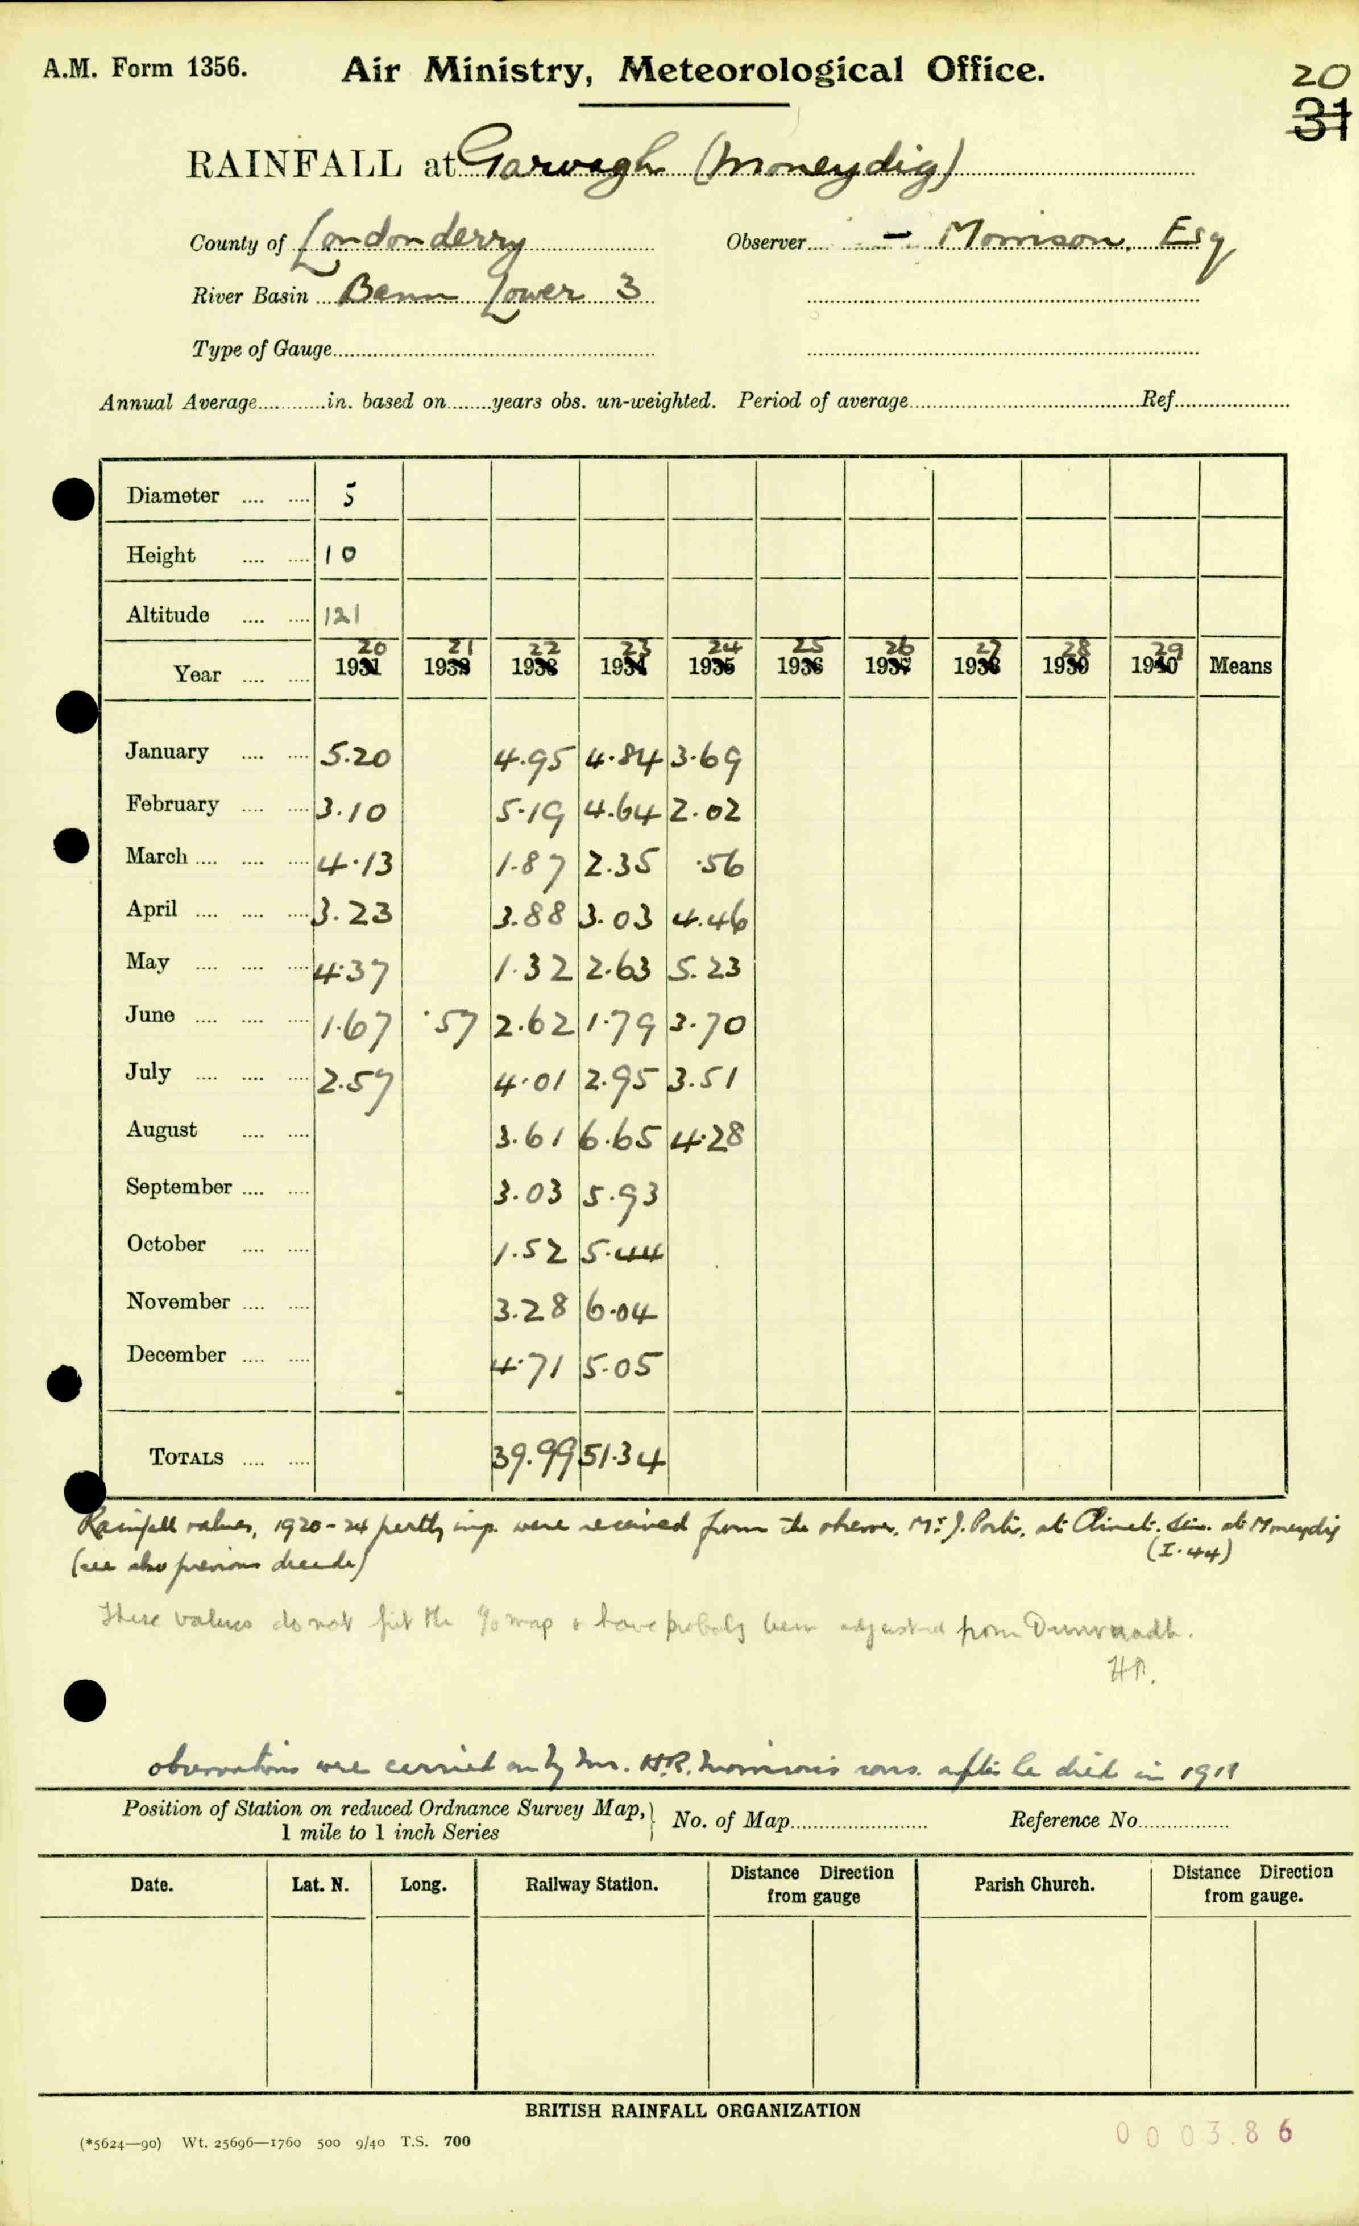 A.M. Form 1356. Air Ministry, Meteorological Office. 20
31
RAINFALL at Garvagh (Moneydig)
County of Londonderry Observer - Morrison, Esq
River Basin Bann Lower 3
Type of Gauge
Annual Average in. based on years obs. un-weighted. Period of average Ref
Diameter 5
Height 10
Altitude 121
20 21 22 23 24 25 26 27 28 29
Year 1931 1932 1933 1934 1935 1936 1937 1938 1939 1940 Means
January 5.20 4.95 4.84 3.69
February 3.10 5.19 4.64 2.02
March 4.13 1.87 2.35 .56
April 3.23 3.88 3.03 4.46
May 4.37 1.32 2.63 5.23
June 1.67 .57 2.62 1.79 3.70
July 2.57 4.01 2.95 3.51
August 3.61 6.65 4.28
September 3.03 5.93
October 1.52 5.44
November 3.28 6.04
December 4.71 5.05
TOTALS 39.99 51.34
Rainfall values, 1920-24 partly imp. were received from the observer, Mr. J. at Climat. Stn. at Moneydig
(see also previous decade) (I.44)
These values do not fit the % map & have probably been adjusted from
H.P.
observations were carried on by Mr. H.R. Morrison's sons after he died in 1911
Position of Station on reduced Ordnance Survey Map, No. of Map Reference No.
1 mile to 1 inch Series
Date. Lat. N. Long. Railway Station. Distance Direction from gauge Parish Church. Distance Direction from gauge.
BRITISH RAINFALL ORGANIZATION
(*5624—90) Wt. 25696—1760 500 9/40 T.S. 700
000386